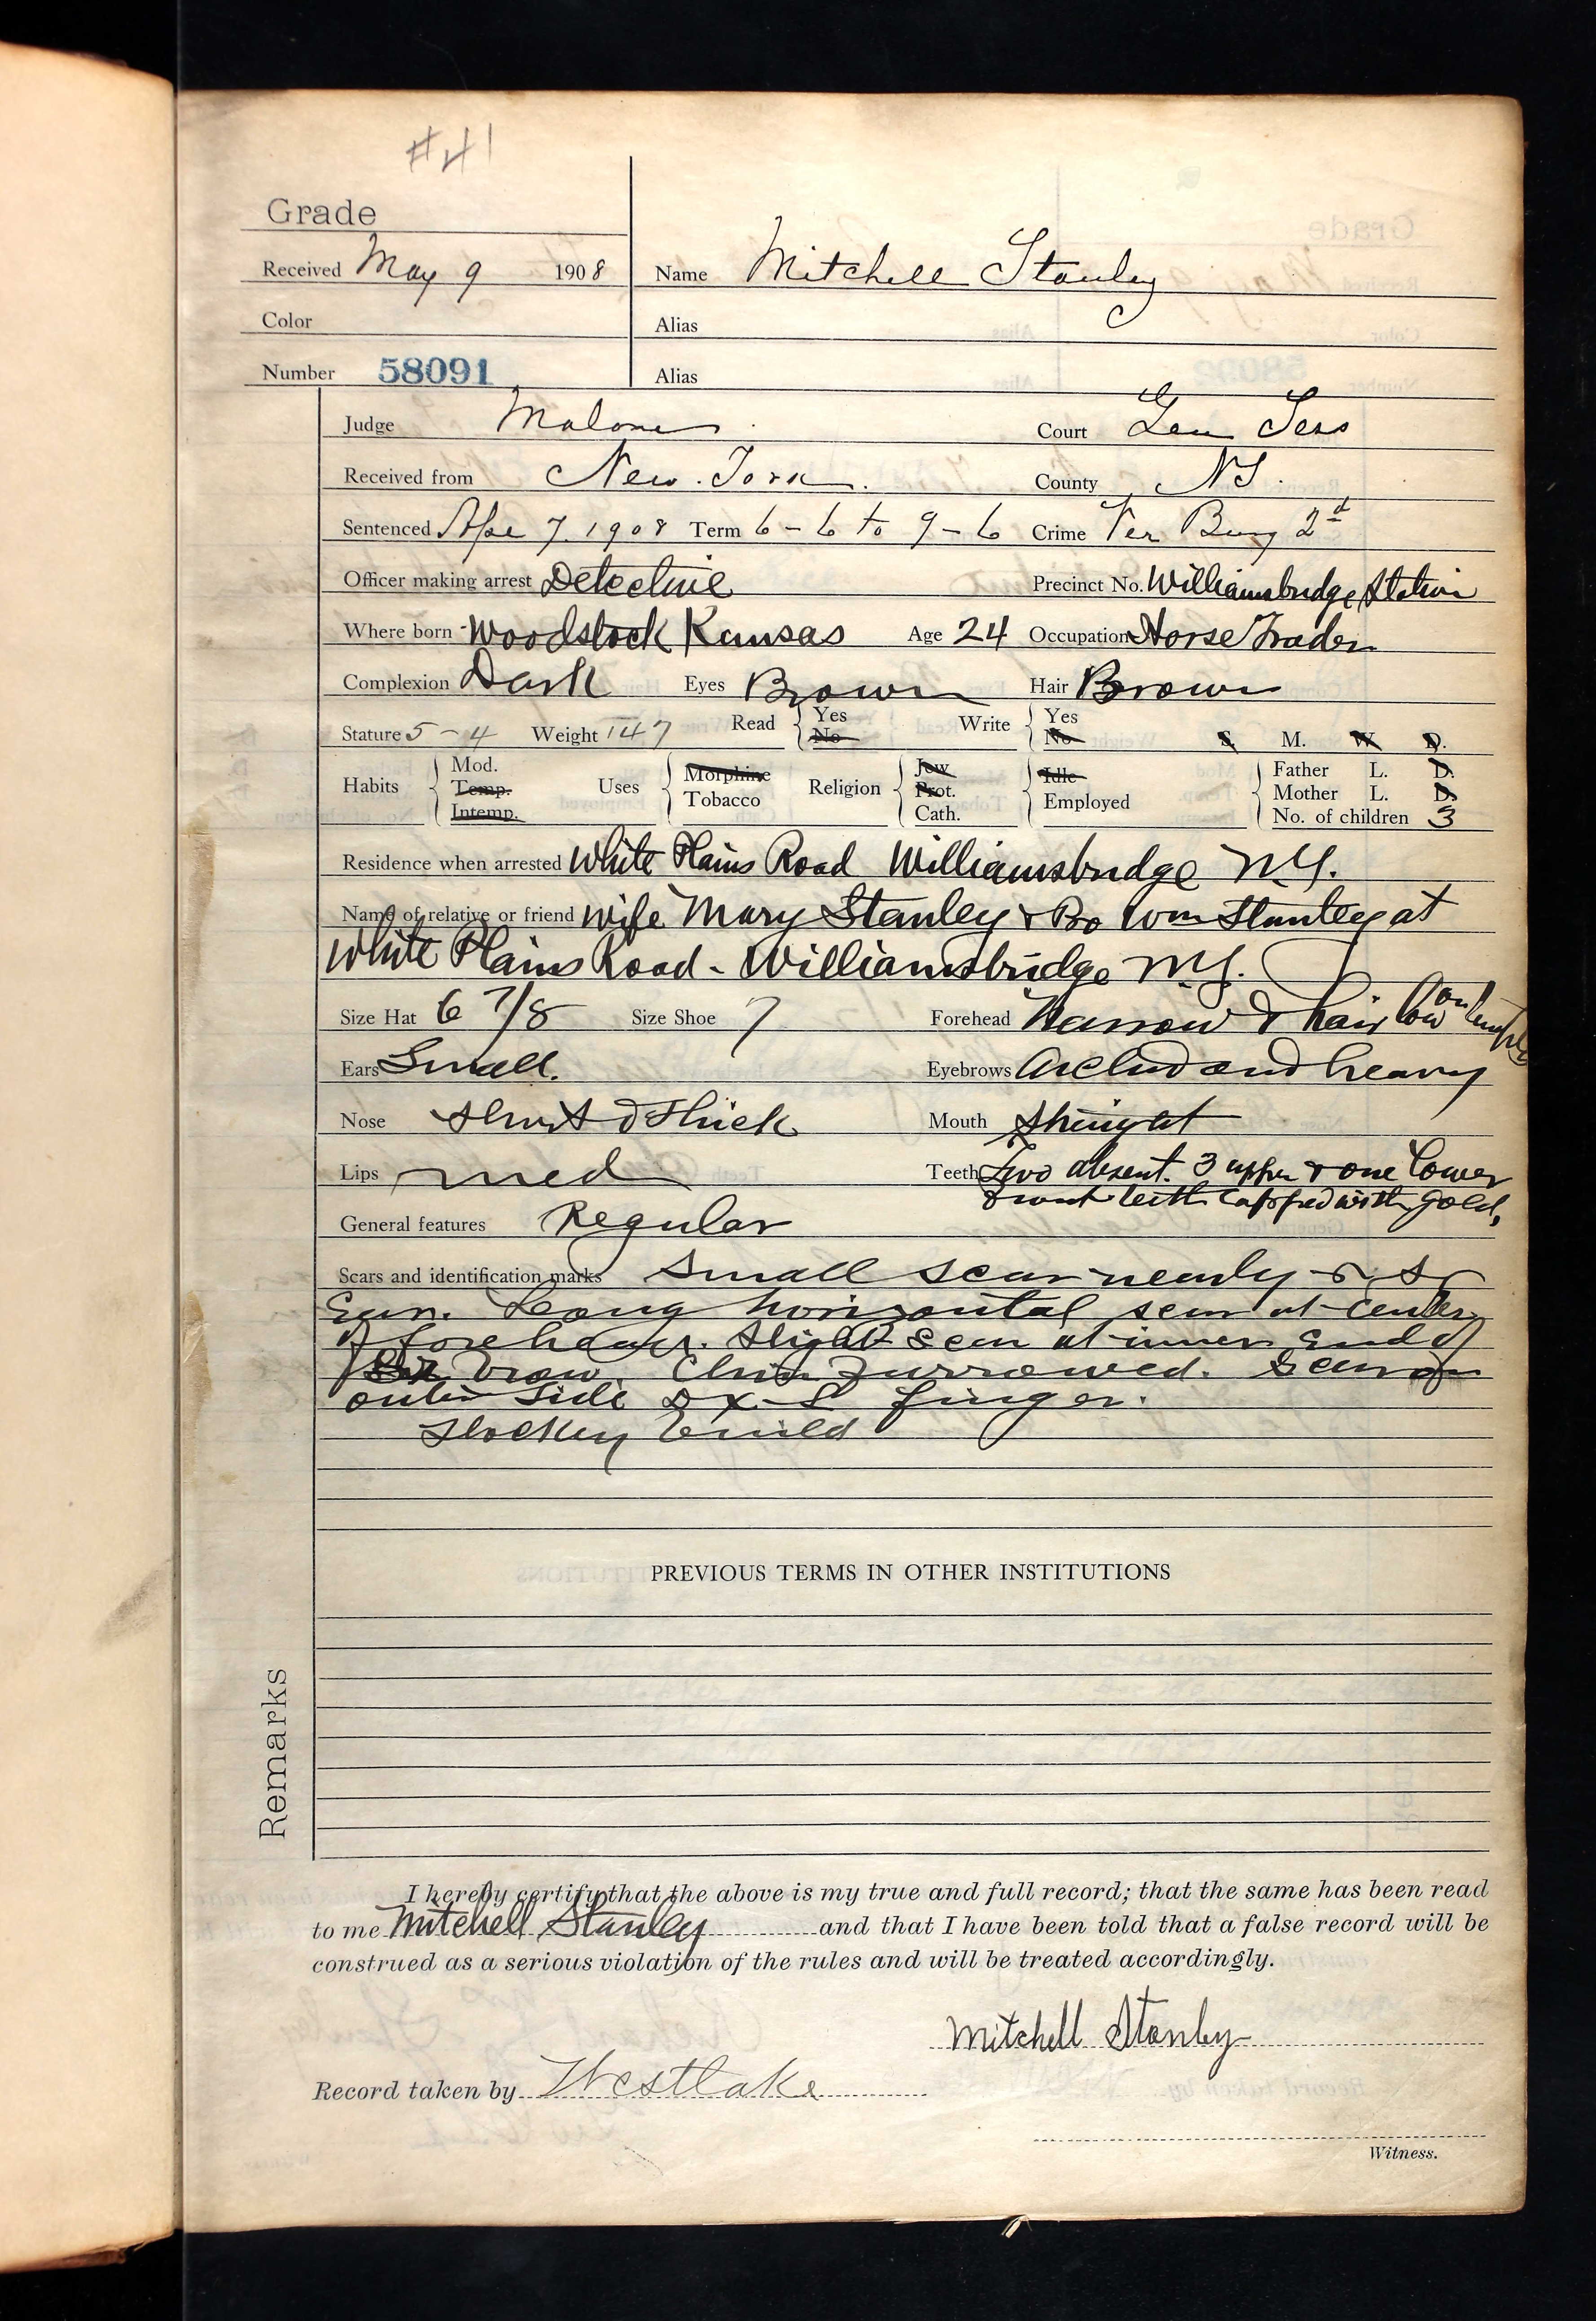 #41
Grade
Received May 9 1908 Name Mitchell Stanley
Color Alias
Number 58091 Alias
Judge Malone Court Gen Sess
Received from New York. County NY.
Sentenced Apr 7. 1908 Term 6-6 to 9-6 Crime Burg 2d
Officer making arrest Detective Precinct No. Williamsbridge Station
Where born Woodstock Kansas Age 24 Occupation Horse Trader
Complexion Dark Eyes Brown Hair Brown
Stature 5-4 Weight 147 Read Yes No Write Yes No S. M. W. D.
Habits Mod. Temp. Intemp. Uses Morphine Tobacco Religion Jew Prot. Cath. Idle Employed Father L. D. Mother L. D. No. of children 3
Residence when arrested White Plains Road Williamsbridge N.Y.
Name of relative or friend Wife Mary Stanley & Bro Wm Stanley at
White Plains Road - Williamsbridge N.Y.
Size Hat 6 7/8 Size Shoe 7 Forehead Narrow & hair low on temple
Ears Small. Eyebrows Arched and heavy
Nose Short & thick Mouth Straight
Lips med Teeth Two absent. 3 upper & one lower
front teeth capped with gold,
General features Regular
Scars and identification marks Small scar nearly
Ear. Long horizontal scar at center
of forehead. Slight scar at inner end of
brow. Chin furrowed. Scar on
outer side finger.
Stocky build
PREVIOUS TERMS IN OTHER INSTITUTIONS
Remarks
I hereby certify that the above is my true and full record; that the same has been read
to me Mitchell Stanley and that I have been told that a false record will be
construed as a serious violation of the rules and will be treated accordingly.
Mitchell Stanley
Record taken by Westlake
Witness.